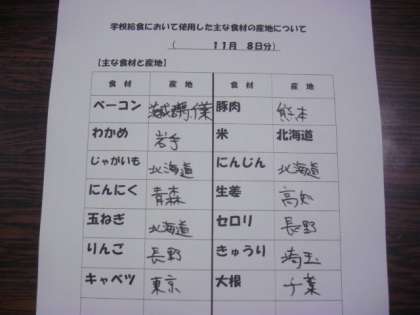 学校給食において使用した主な食材の産地について
( 11月 8日分)
【主な食材と産地】
食材 産地 食材 産地
ベーコン 豚肉 熊本
わかめ 岩手 米 北海道
じゃがいも 北海道 にんじん 北海道
にんにく 青森 生姜 高知
玉ねぎ 北海道 セロリ 長野
りんご 長野 きゅうり 埼玉
キャベツ 東京 大根 千葉